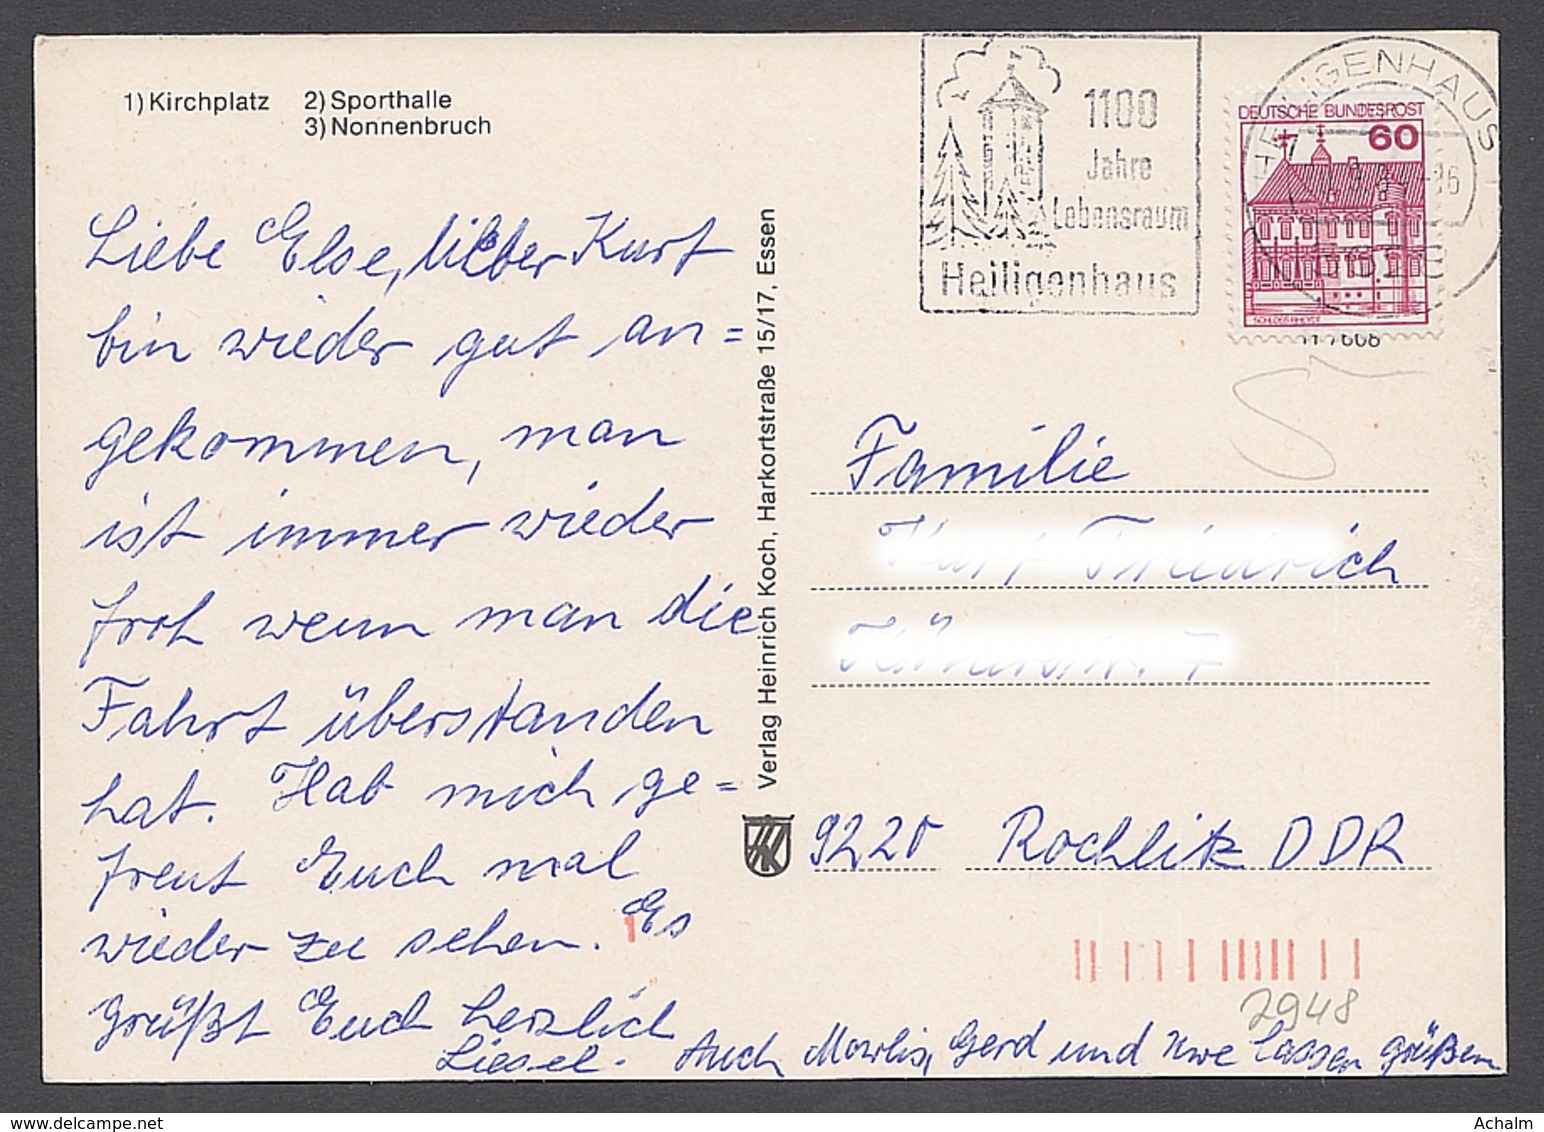 1) Kirchplatz 2) Sporthalle
3) Nonnenbruch
Liebe Else, lieber Kurt
bin wieder gut an=
gekommen, man
ist immer wieder
froh wenn man die
Fahrt überstanden
hat. Hab mich ge=
freut Euch mal
wieder zu sehen. Es
grüßt Euch herzlich
Liesel. Auch Marlis, Gerd und Uwe lassen grüßen
Verlag Heinrich Koch, Harkortstraße 15/17, Essen
1100
Jahre
Lebensraum
Heiligenhaus
HEILIGENHAUS
DEUTSCHE BUNDESPOST
60
SCHLOSS RHEYDT
Familie
Kurt Friedrich
9220 Rochlitz DDR
1
2948
Achalm